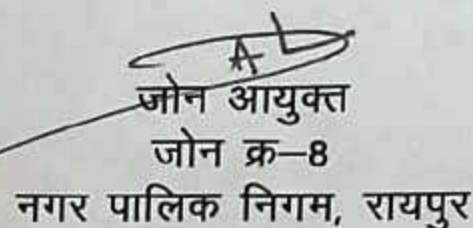 जोन आयुक्त
जोन क्र–8
नगर पालिक निगम, रायपुर